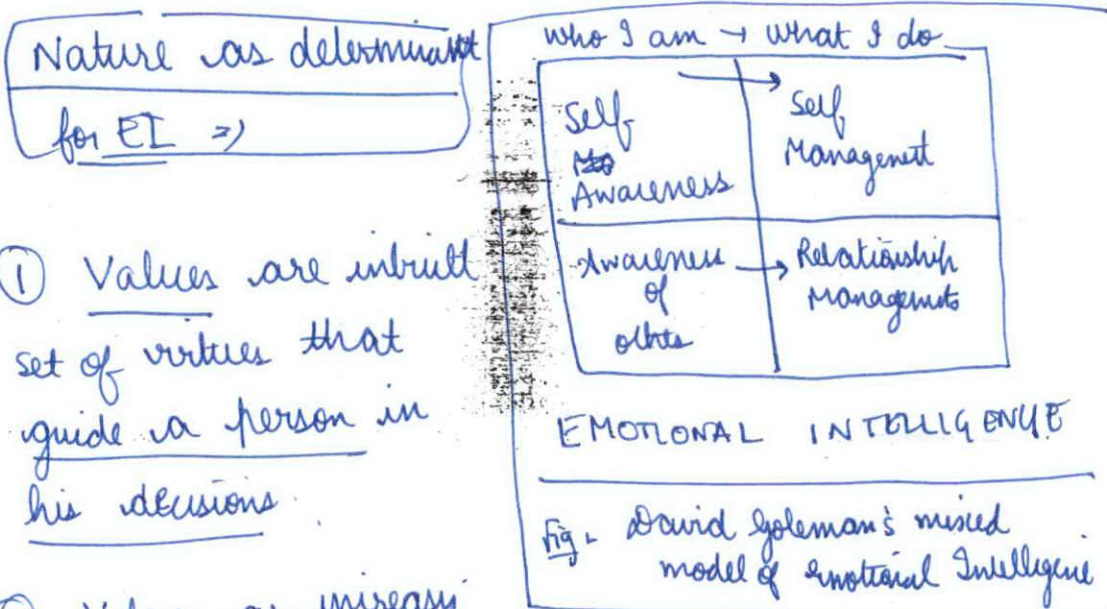 Nature as determinant
for EI =>
① Values are inbuilt
set of virtues that
guide a person in
his decisions.
who I am → what I do
Self
Awareness
Self
Management
Awareness
of
others
Relationship
Managements
EMOTIONAL INTELLIGENCE
Fig - David Goleman's mixed
model of emotional Intelligence